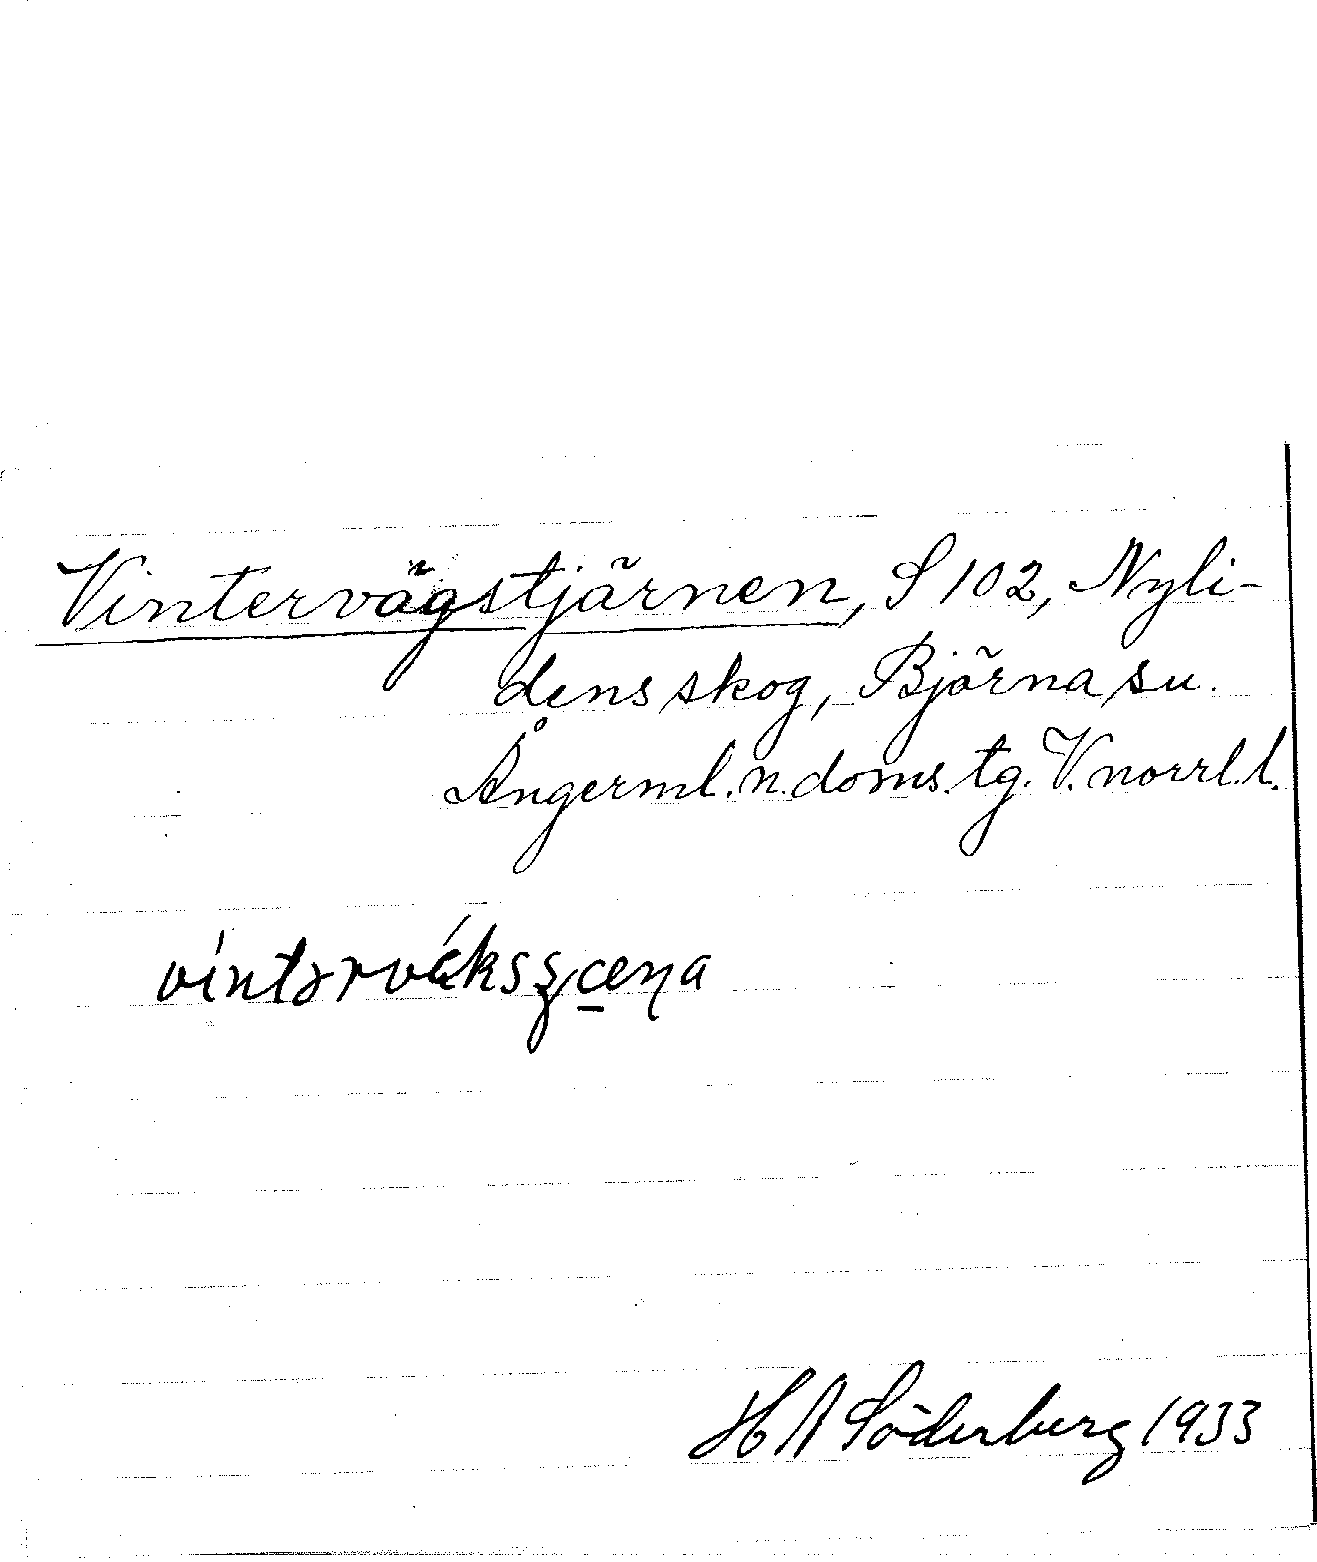 Vintervägstjärnen, S 102, Nyli-
dens skog, Björna su.
Ångerml. n. doms. tg. V. norrl. l.
H A Söderberg 1933